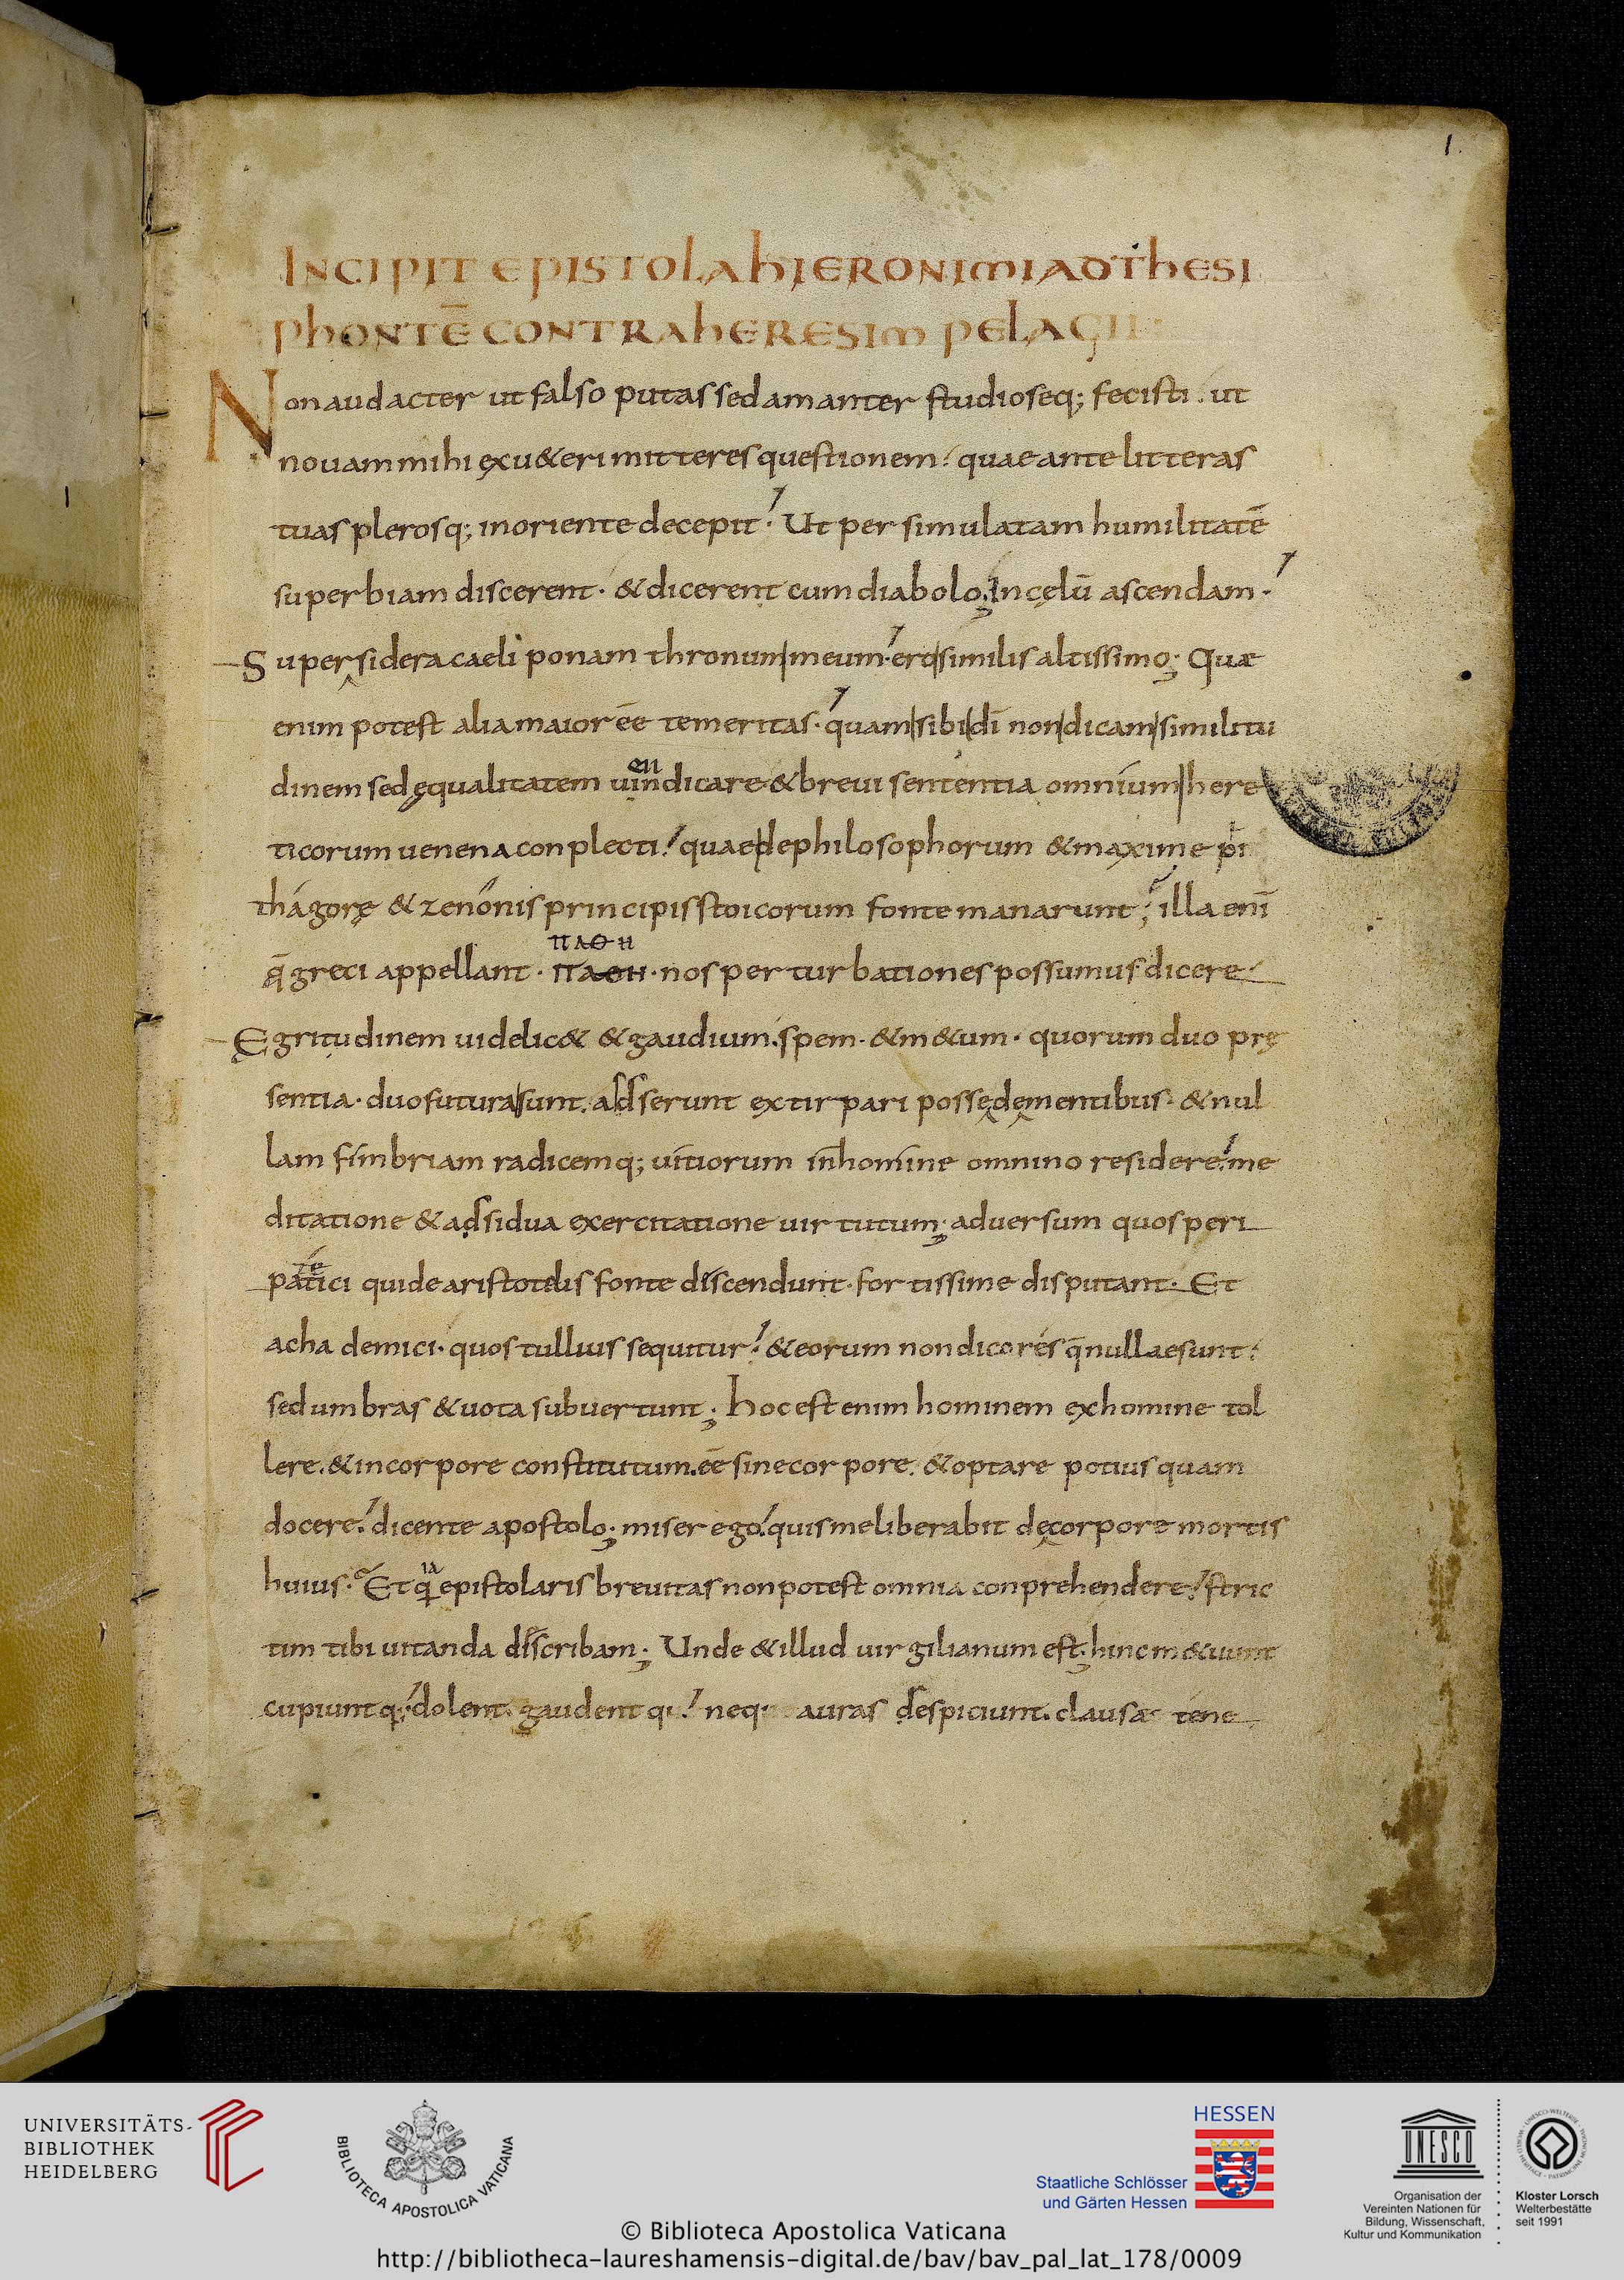 1.
INCIPIT EPISTOLA HIERONIMI AD THESI
PHONTĒ CONTRA HERESIM PELAGII
Non audacter ut falso putas sed amanter studioseq; fecisti . ut
novam mihi ex u&eri mitteres questionem: quae ante litteras
tuas plerosq; in oriente decepit· Ut per simulatam humilitatē
superbiam discerent· & dicerent cum diabolo; In cęlū ascendam·
Super sidera caeli ponam thronum meum· ero similis altissimo; Quae
enim potest alia maior ēe temeritas· quam sibi dī non dicam similitu
dinem sed ęqualitatem vindicare & brevi sententia omnium here
en
ticorum venena conplecti! quae de philosophorum & maxime pi
thágorę & zenónis principis stoicorum fonte manarunt; illa enī
ΠΑΘΗ
q̄ greci appellant· ΠΑΘΗ· nos perturbationes possumus dicere
Egritudinem videlic& & gaudium. spem· & m&um· quorum duo prę
sentia· duo futura sunt. adserunt extirpari posse de mentibus· & nul
lam fimbriam radicemq; vitiorum in homine omnino residere: me
ditatione & adsidua exercitatione virtutum; adversum quos peri
patici qui de aristotelis fonte discendunt· fortissime disputant· Et
te
achademici· quos tullius sequitur! & eorum non dico rés q̄ nullae sunt:
sed umbras & vota subvertunt; Hoc est enim hominem ex homine tol
lere. & in corpore constitutum. ēe sine corpore. & optare potius quam
docere! dicente apostolo; miser ego! quis me liberabit de corpore mortis
huius· Et q ia epistolaris brevitas non potest omnia conprehendere! stric
tim tibi vitanda discribam; Unde & illud virgilianum est; hinc m&uunt
cupiuntq; dolent. gaudent qu! neq: auras despiciunt. clausae tene
UNIVERSITÄTS-
BIBLIOTHEK
HEIDELBERG
BIBLIOTECA APOSTOLICA VATICANA
HESSEN
Staatliche Schlösser
und Gärten Hessen
UNESCO
Organisation der
Vereinten Nationen für
Bildung, Wissenschaft,
Kultur und Kommunikation
Kloster Lorsch
Welterbestätte
seit 1991
© Biblioteca Apostolica Vaticana
http://bibliotheca-laureshamensis-digital.de/bav/bav_pal_lat_178/0009